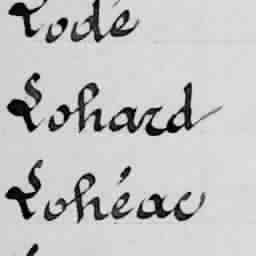 Lodé
Lohard
Lohéac